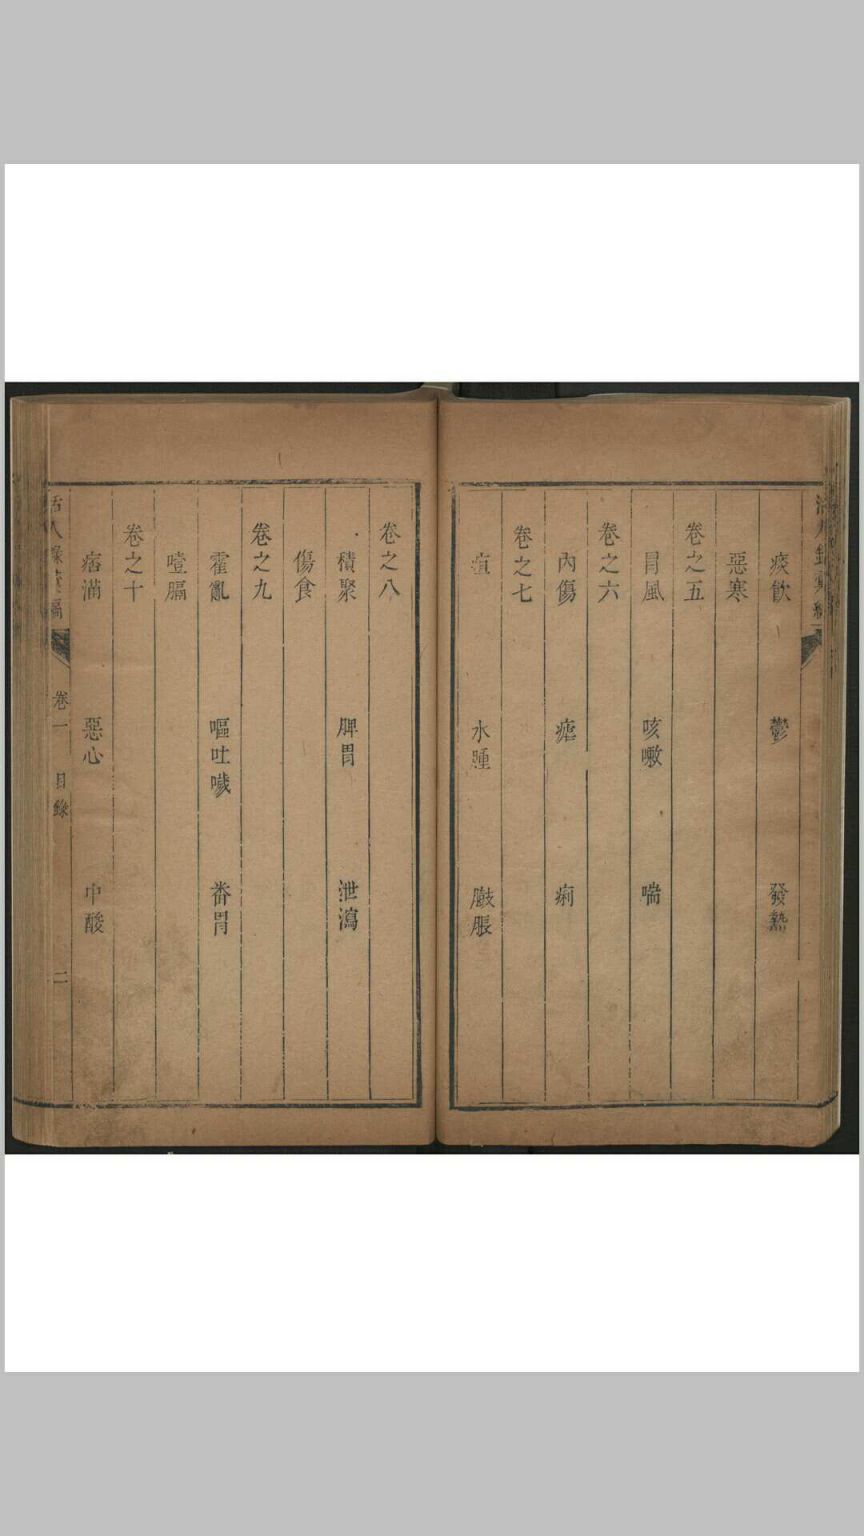 痰飲 鬱 發熱
惡寒
卷之五
冒風 咳嗽 喘
卷之六
內傷 瘧 痢
卷之七
疸 水腫 臌脹
卷之八
積聚 脾胃 泄瀉
傷食
卷之九
霍亂 嘔吐噦 番胃
噎膈
卷之十
痞滿 惡心 中酸
卷一 目錄 二